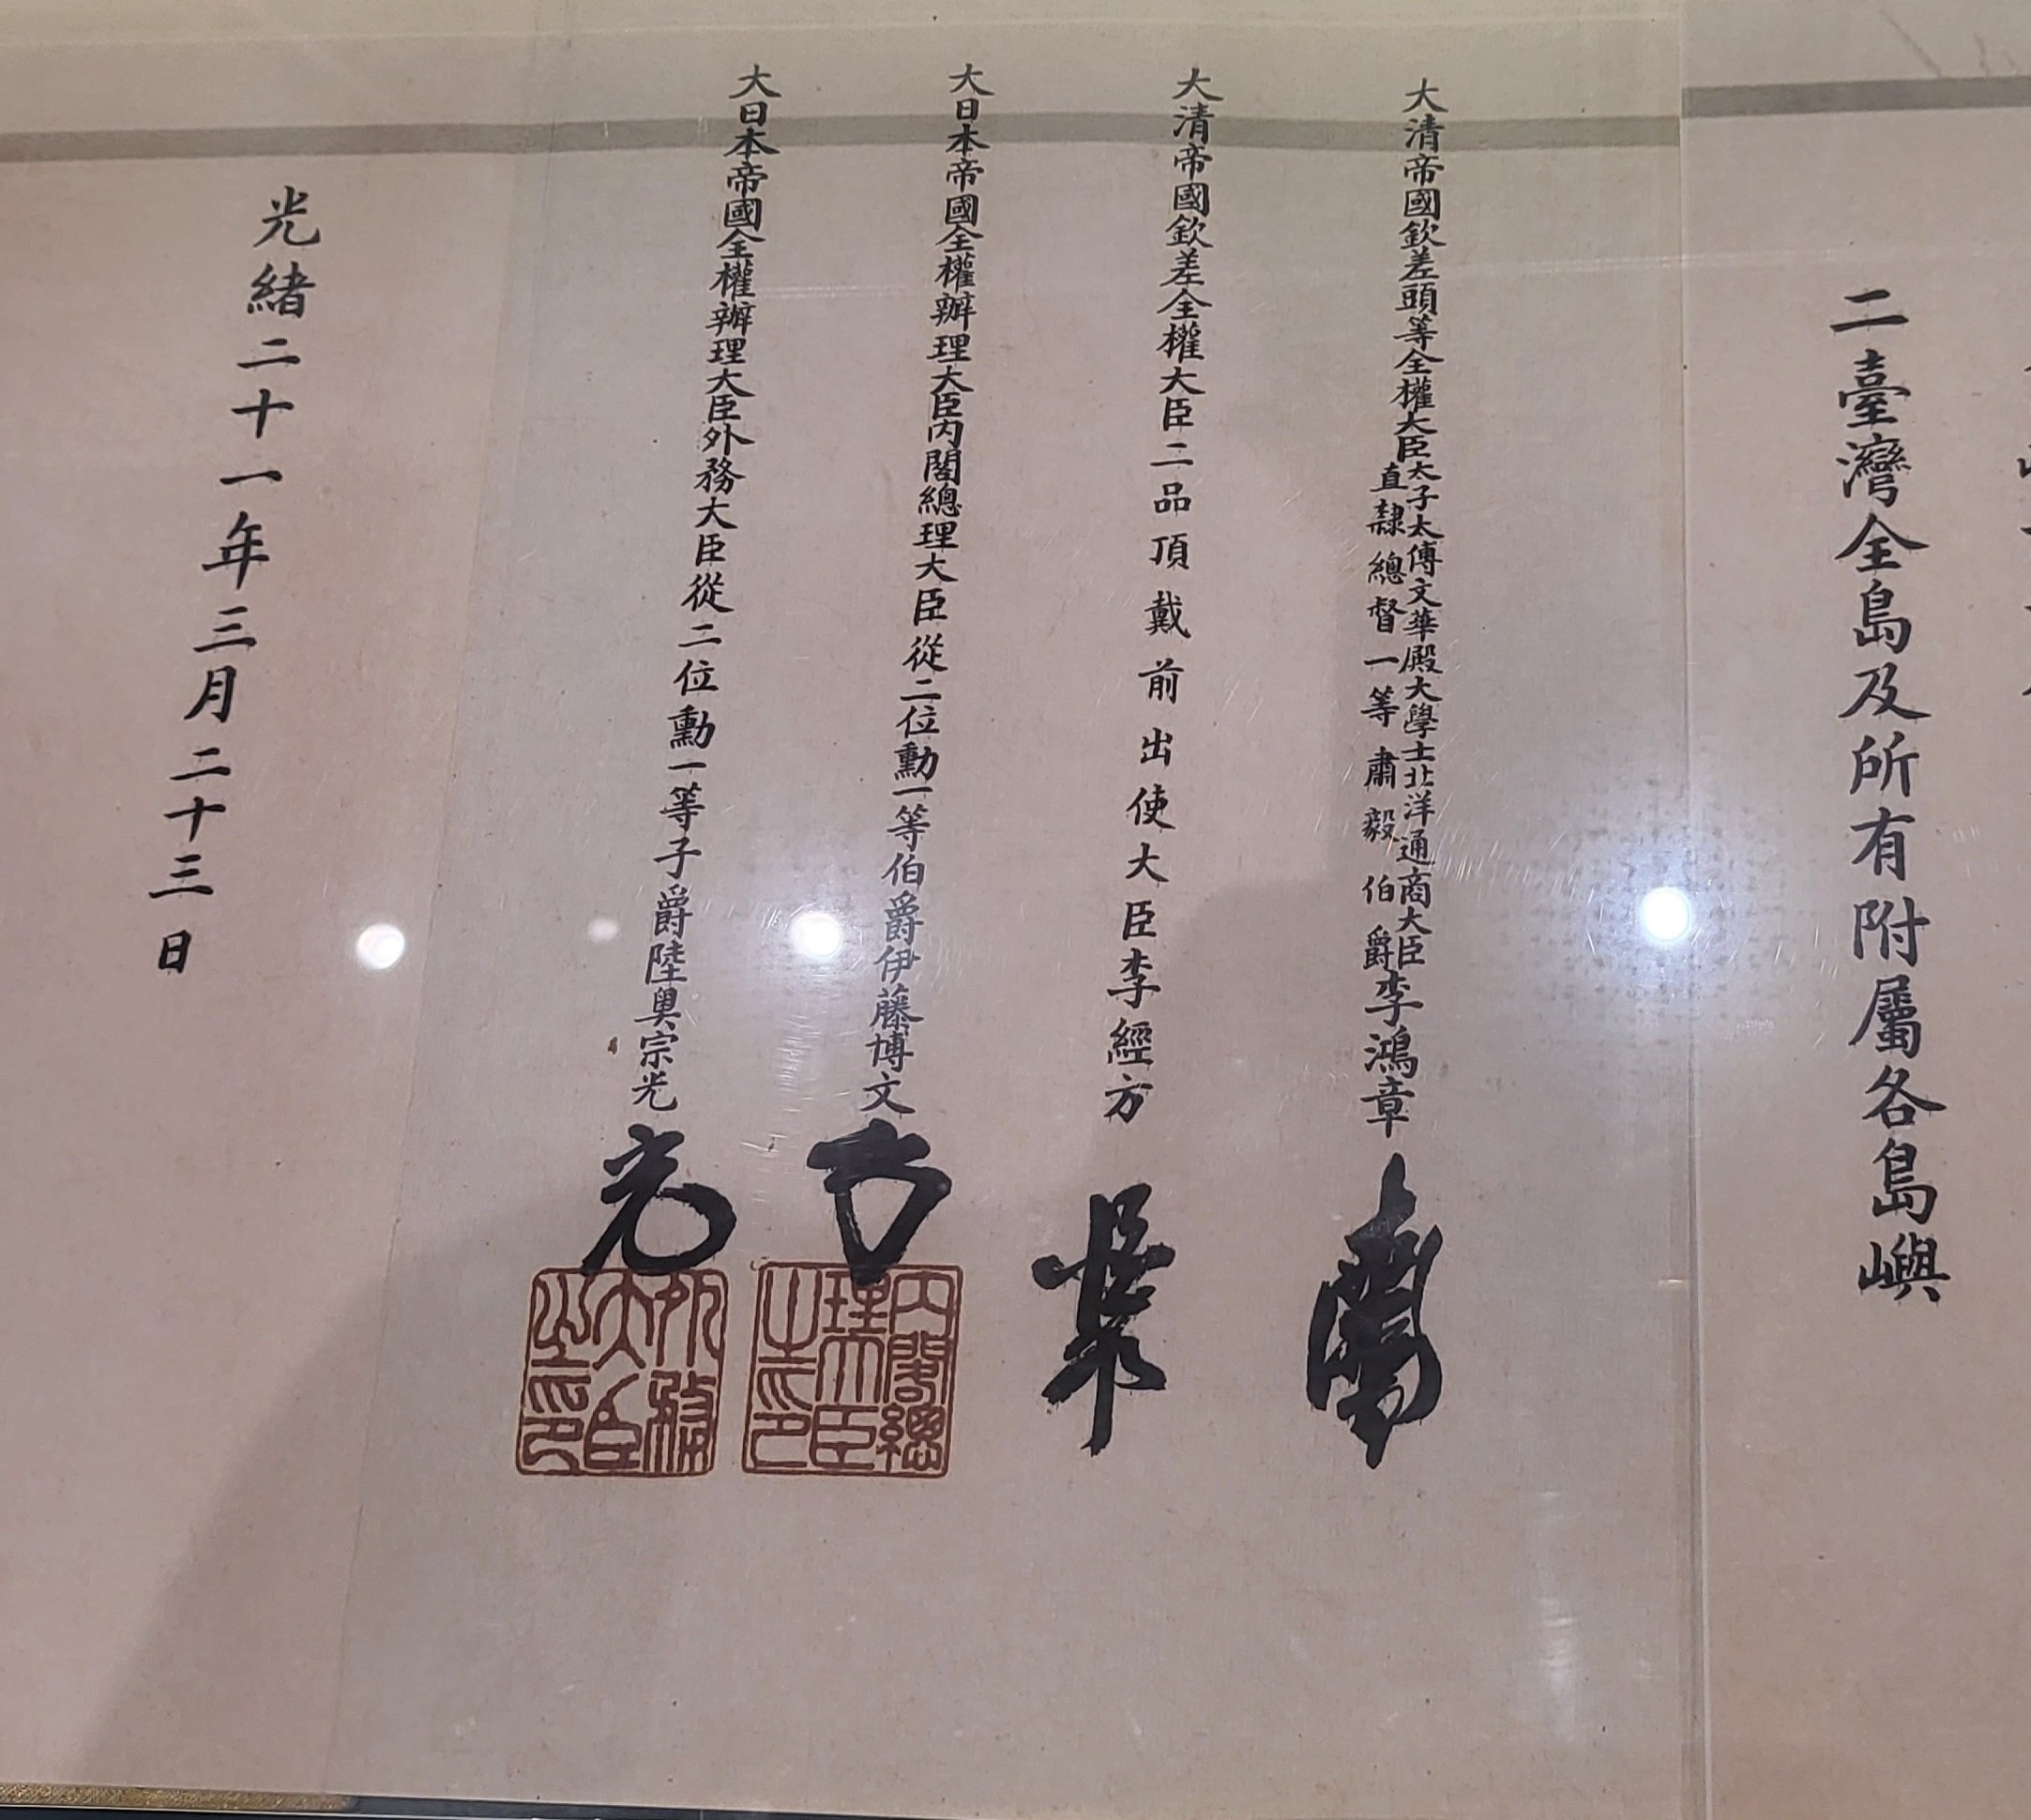 二臺灣全島及所有附屬各島嶼
大清帝國欽差頭等全權大臣太子太傅文華殿大學士北洋通商大臣
直隸總督一等肅毅伯爵李鴻章
大清帝國欽差全權大臣二品頂戴前出使大臣李經方
大日本帝國全權辦理大臣內閣總理大臣從二位勳一等伯爵伊藤博文
內閣總理大臣之印
大日本帝國全權辦理大臣外務大臣從二位勳一等子爵陸奧宗光
外務大臣之印
光緒二十一年三月二十三日